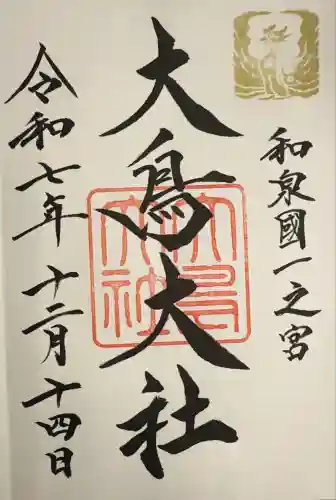 和泉國一之宮
大鳥大社
大鳥大社
令和七年 十二月 十四日